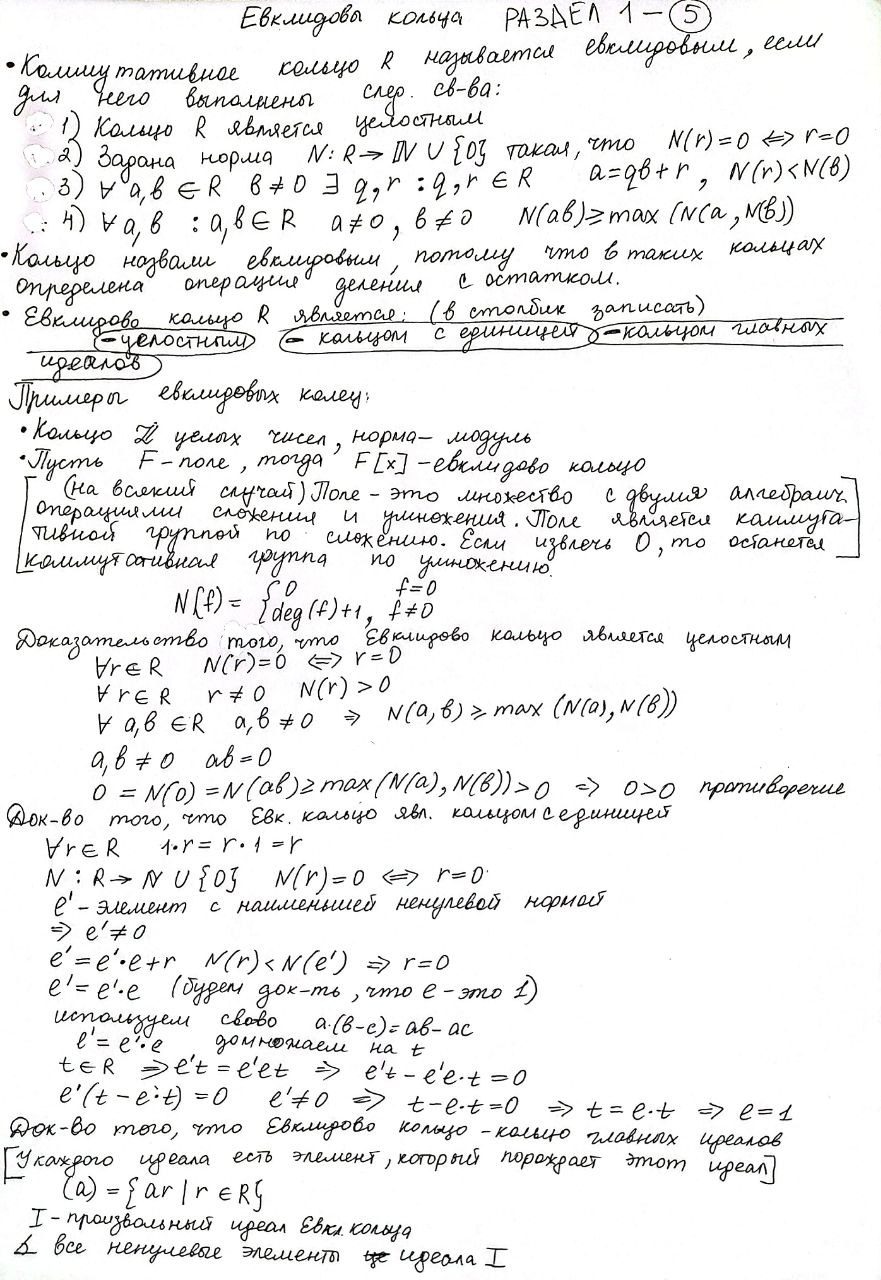 Евклидовы кольца РАЗДЕЛ 1 – 5
• Коммутативное кольцо R называется евклидовым, если
для него выполнены след. св-ва:
1) Кольцо R является целостным
2) Задана норма N: R → ℕ ∪ {0} такая, что N(r)=0 ⇔ r=0
3) ∀ a,b ∈ R b≠0 ∃ q,r : q,r ∈ R a=qb+r, N(r)<N(b)
4) ∀ a,b : a,b ∈ R a≠0, b≠0 N(ab) ≥ max (N(a, N(b))
• Кольцо назвали евклидовым, потому что в таких кольцах
определена операция деления с остатком.
• Евклидово кольцо R является: (в столбик записать)
– целостным – кольцом с единицей – кольцом главных
идеалов
Примеры евклидовых колец:
• Кольцо ℤ целых чисел, норма – модуль
• Пусть F – поле, тогда F[x] – евклидово кольцо
[(на всякий случай) Поле – это множество с двумя алгебраич.
операциями сложения и умножения. Поле является коммута-
тивной группой по сложению. Если извлечь 0, то останется
коммутативная группа по умножению.]
N(f) = { 0 f=0
deg(f)+1, f≠0
Доказательство того, что Евклидово кольцо является целостным
∀r ∈ R N(r)=0 ⇔ r=0
∀ r ∈ R r ≠ 0 N(r) > 0
∀ a,b ∈ R a,b ≠ 0 ⇒ N(a,b) ≥ max (N(a), N(b))
a,b ≠ 0 ab = 0
0 = N(0) = N(ab) ≥ max(N(a), N(b)) > 0 ⇒ 0>0 противоречие
Док-во того, что Евк. кольцо явл. кольцом с единицей
∀r ∈ R 1·r = r·1 = r
N : R → ℕ ∪ {0} N(r)=0 ⇔ r=0
e' – элемент с наименьшей ненулевой нормой
⇒ e' ≠ 0
e' = e'·e + r N(r) < N(e') ⇒ r=0
e' = e'·e (будем док-ть, что e – это 1)
используем свово a·(b-c) = ab - ac
e' = e'·e домножаем на t
t ∈ R ⇒ e't = e'et ⇒ e't - e'e·t = 0
e'(t - e·t) = 0 e' ≠ 0 ⇒ t - e·t = 0 ⇒ t = e·t ⇒ e = 1
Док-во того, что Евклидово кольцо – кольцо главных идеалов
[У каждого идеала есть элемент, который порождает этот идеал]
(a) = {ar | r ∈ R}
I – произвольный идеал Евкл. кольца
все ненулевые элементы идеала I